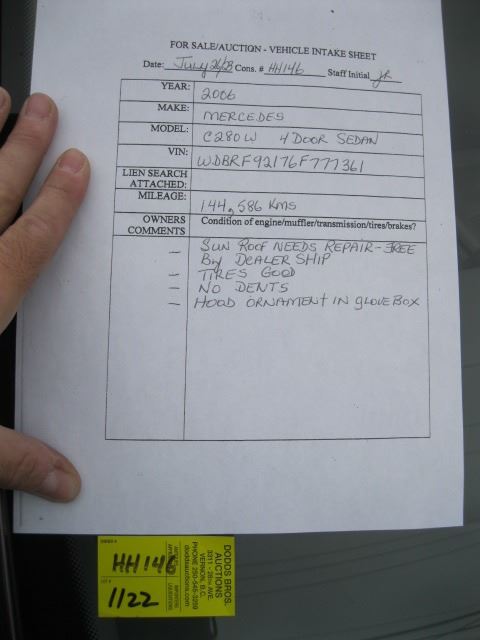 FOR SALE/AUCTION - VEHICLE INTAKE SHEET
Date: July 26/08 Cons. # HH146 Staff Initial JR
YEAR: 2006
MAKE: MERCEDES
MODEL: C280W 4 DOOR SEDAN
VIN: WDBRF92J76F777361
LIEN SEARCH
ATTACHED:
MILEAGE: 144,586 KMS
OWNERS
COMMENTS
Condition of engine/muffler/transmission/tires/brakes?
- SUN ROOF NEEDS REPAIR - FREE
By DEALERSHIP
- TIRES GOOD
- NO DENTS
- HOOD ORNAMENT IN GLOVE BOX
HH146
1122
DODDS BROS.
AUCTIONS
3311 - 28TH AVE.
VERNON, B.C.
PHONE 250-545-3259
doddsauctions.com